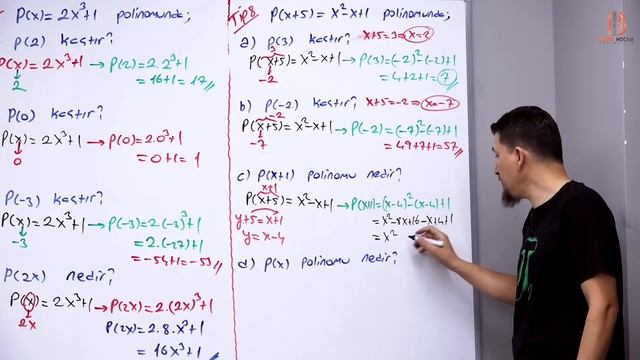 P(x) = 2x³+1 polinomunda;
P(2) kaçtır?
P(x) = 2x³+1 → P(2) = 2.2³+1
2
= 16+1 = 17
P(0) kaçtır?
P(x) = 2x³+1 → P(0) = 2.0³+1
0
= 0+1 = 1
P(-3) kaçtır?
P(x) = 2x³+1 → P(-3) = 2.(-3)³+1
-3
= 2.(-27)+1
= -54+1 = -53
P(2x) nedir?
P(x) = 2x³+1 → P(2x) = 2.(2x)³+1
2x
P(2x) = 2.8.x³+1
= 16x³+1
Tip 8
P(x+5) = x²-x+1 polinomunda;
a) P(3) kaçtır? x+5=3 ⇒ x=-2
3
P(x+5) = x²-x+1 → P(3) = (-2)²-(-2)+1
-2
= 4+2+1 = 7
b) P(-2) kaçtır? x+5=-2 ⇒ x=-7
-2
P(x+5) = x²-x+1 → P(-2) = (-7)²-(-7)+1
-7
= 49+7+1 = 57
c) P(x+1) polinomu nedir?
x+1
P(x+5) = x²-x+1 → P(x+1) = (x-4)²-(x-4)+1
y+5 = x+1
= x²-8x+16-x+4+1
y = x-4
= x²
d) P(x) polinomu nedir?